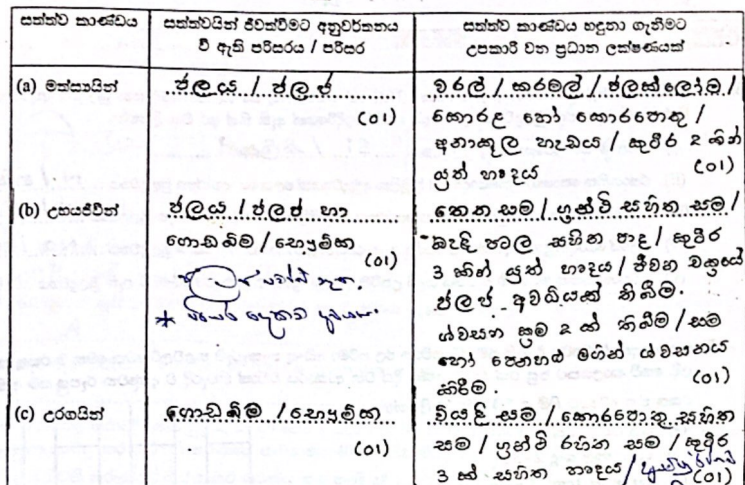 සත්ත්ව කාණ්ඩය
සත්ත්වයින් ජීවත්වීමට අනුවර්තනය
වී ඇති පරිසරය / පරිසර
සත්ත්ව කාණ්ඩය හඳුනා ගැනීමට
උපකාරී වන ප්‍රධාන ලක්ෂණයක්
(a) මත්ස්‍යයින්
ජලය / ජලජ
(01)
වරල් / කරමල් / ජලක්ලෝම /
කොරළ හෝ කොරපොතු /
අනාකූල හැඩය / කුටීර 2 කින්
යුත් හෘදය (01)
(b) උභයජීවීන්
ජලය / ජලජ හා
ගොඩබිම / භෞමික
(01)
තෙත සම / ග්‍රන්ථි සහිත සම /
බැඳි පටල සහිත පාද / කුටීර
3 කින් යුත් හෘදය / ජීවන චක්‍රයේ
ජලජ අවධියක් තිබීම.
ශ්වසන ක්‍රම 2 ක් තිබීම / සම
හෝ පෙනහළු මගින් ශ්වසනය
කිරීම. (01)
(c) උරගයින්
ගොඩබිම / භෞමික
(01)
වියළි සම / කොරපොතු සහිත
සම / ග්‍රන්ථි රහිත සම / කුටීර
3 ක් සහිත හෘදය /
(01)